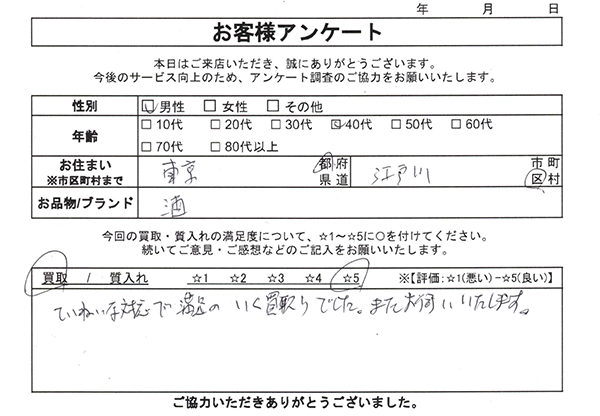 年 月 日
お客様アンケート
本日はご来店いただき、誠にありがとうございます。
今後のサービス向上のため、アンケート調査のご協力をお願いいたします。
性別 □男性 □女性 □その他
年齢 □10代 □20代 □30代 □40代 □50代 □60代
□70代 □80代以上
お住まい ※市区町村まで 東京 都府県道 江戸川 市町区村
お品物/ブランド 酒
今回の買取・質入れの満足度について、☆1～☆5に○を付けてください。
続いてご意見・ご感想などのご記入をお願いいたします。
買取 / 質入れ ☆1 ☆2 ☆3 ☆4 ☆5 ※【評価:☆1(悪い)−☆5(良い)】
ていねいな対応で満足のいく買取りでした。またお伺いいたします。
ご協力いただきありがとうございました。